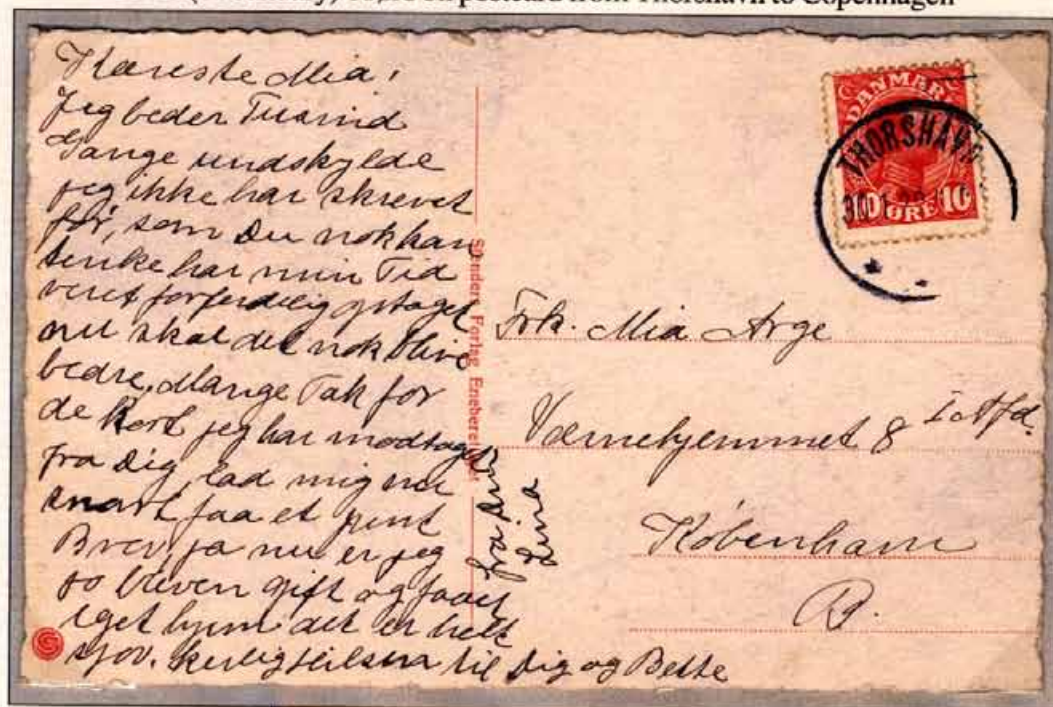 postcard from Thorshavn to Copenhagen
Kæreste Mia,
Jeg beder Tusind
Gange undskylde
jeg ikke har skrevet
før, som Du nok kan
tenke har min Tid
veret forferdelig optaget
nu skal det nok blive
bedre, Mange Tak for
de Kort jeg har modtaget
fra Dig, lad mig nu
snart faa et pent
Brev, ja nu er jeg
so bleven gift og faaet
eget hjem det er helt
sjov. Kerlig Hilsen til Dig og Bette
fra din
Lina
Sønders Forlag Eneberettiget
DANMARK
10 ØRE 10
THORSHAVN
30.1
Frk. Mia Arge
Værnehjemmet 8 I Afd.
København
B.
G